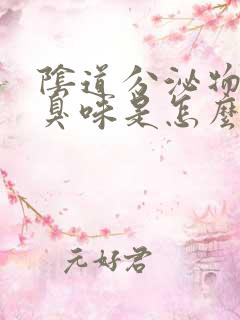 陰道分泌物
臭味是怎麼
元好君